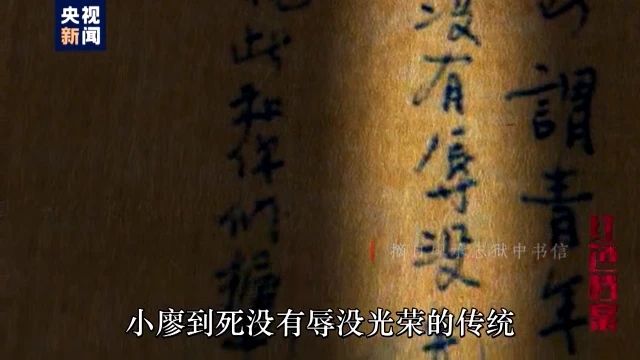 央视
新闻
謂青年
没有辱没
此和你們
狱中书信
红色档案
小廖到死没有辱没光荣的传统